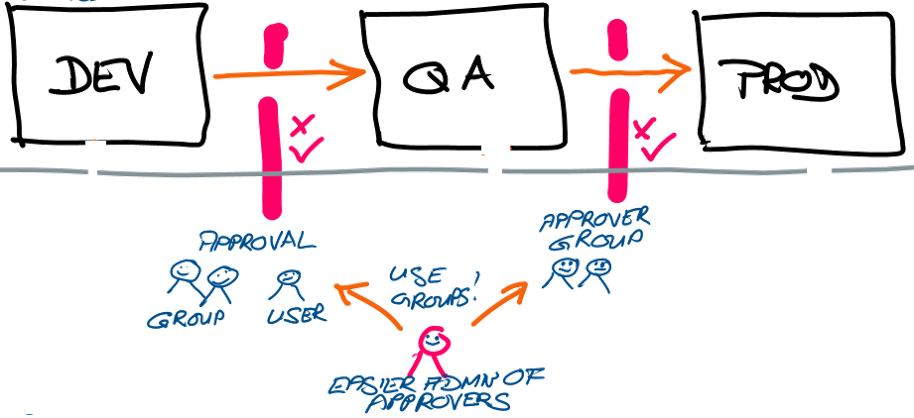 DEV
QA
PROD
APPROVAL
GROUP
USER
USE
GROUPS!
APPROVER
GROUP
EASIER ADMN OF
APPROVERS